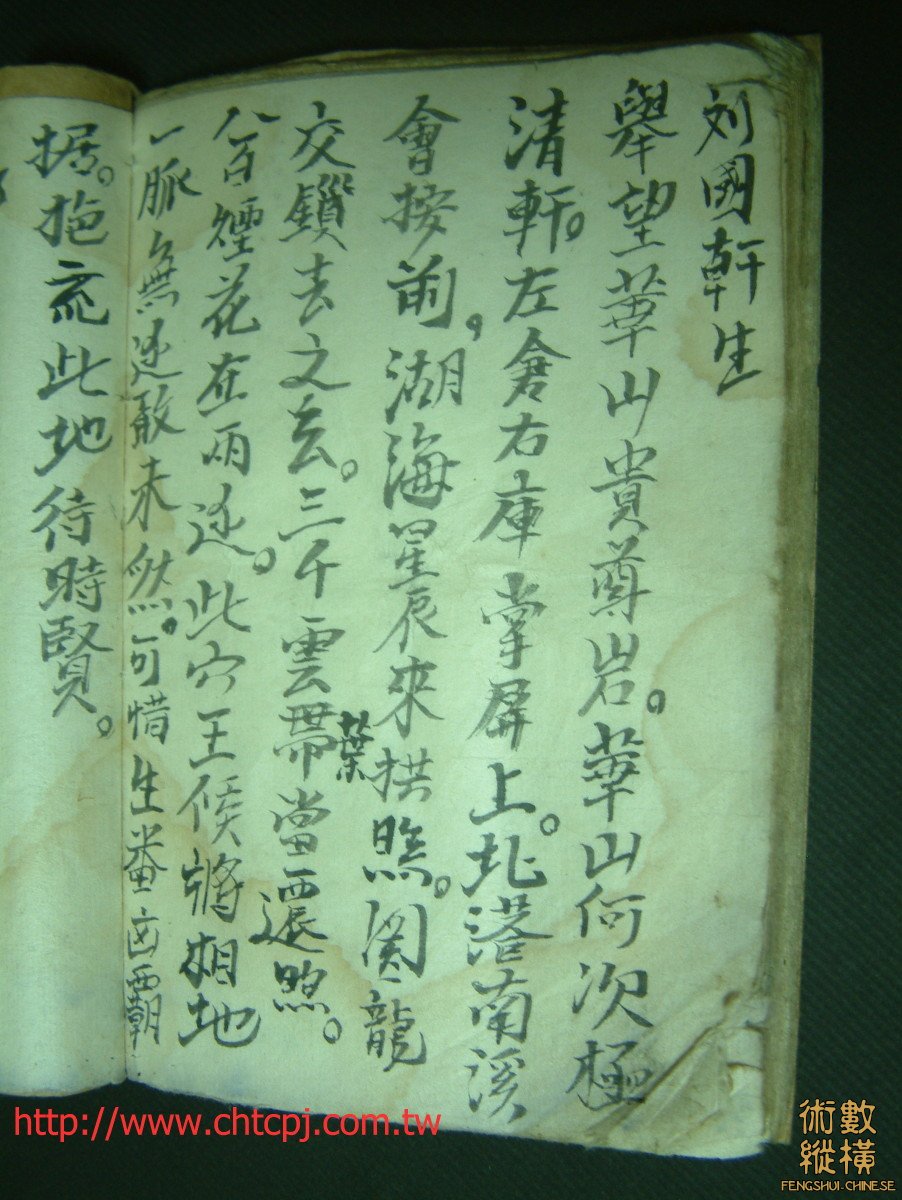 刘國軒生
舉望華山貴尊岩。華山何次極
清軒。左倉右庫掌屏上。北港南溪
會按前。湖海星辰來拱照。関龍
交鎖去之玄。三千雲帶葉當還照。
八百煙花在兩边。此穴王侯將相地
一脉無边敢未然。可惜生番占霸
据。 此地待時賢。
http://www.chtcpj.com.tw
術數縱橫
FENGSHUI-CHINESE